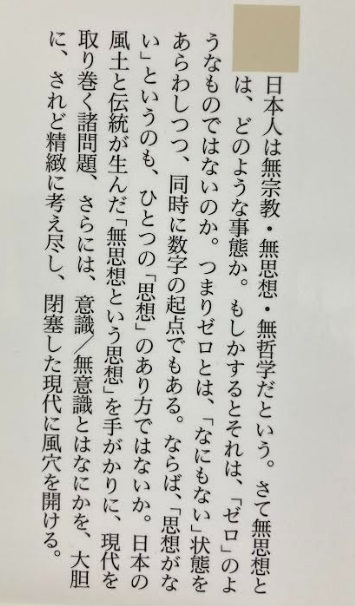 日本人は無宗教・無思想・無哲学だという。さて無思想と
は、どのような事態か。もしかするとそれは、「ゼロ」のよ
うなものではないのか。つまりゼロとは、「なにもない」状態を
あらわしつつ、同時に数字の起点でもある。ならば、「思想がな
い」というのも、ひとつの「思想」のあり方ではないか。日本の
風土と伝統が生んだ「無思想という思想」を手がかりに、現代を
取り巻く諸問題、さらには、意識／無意識とはなにかを、大胆
に、されど精緻に考え尽し、閉塞した現代に風穴を開ける。